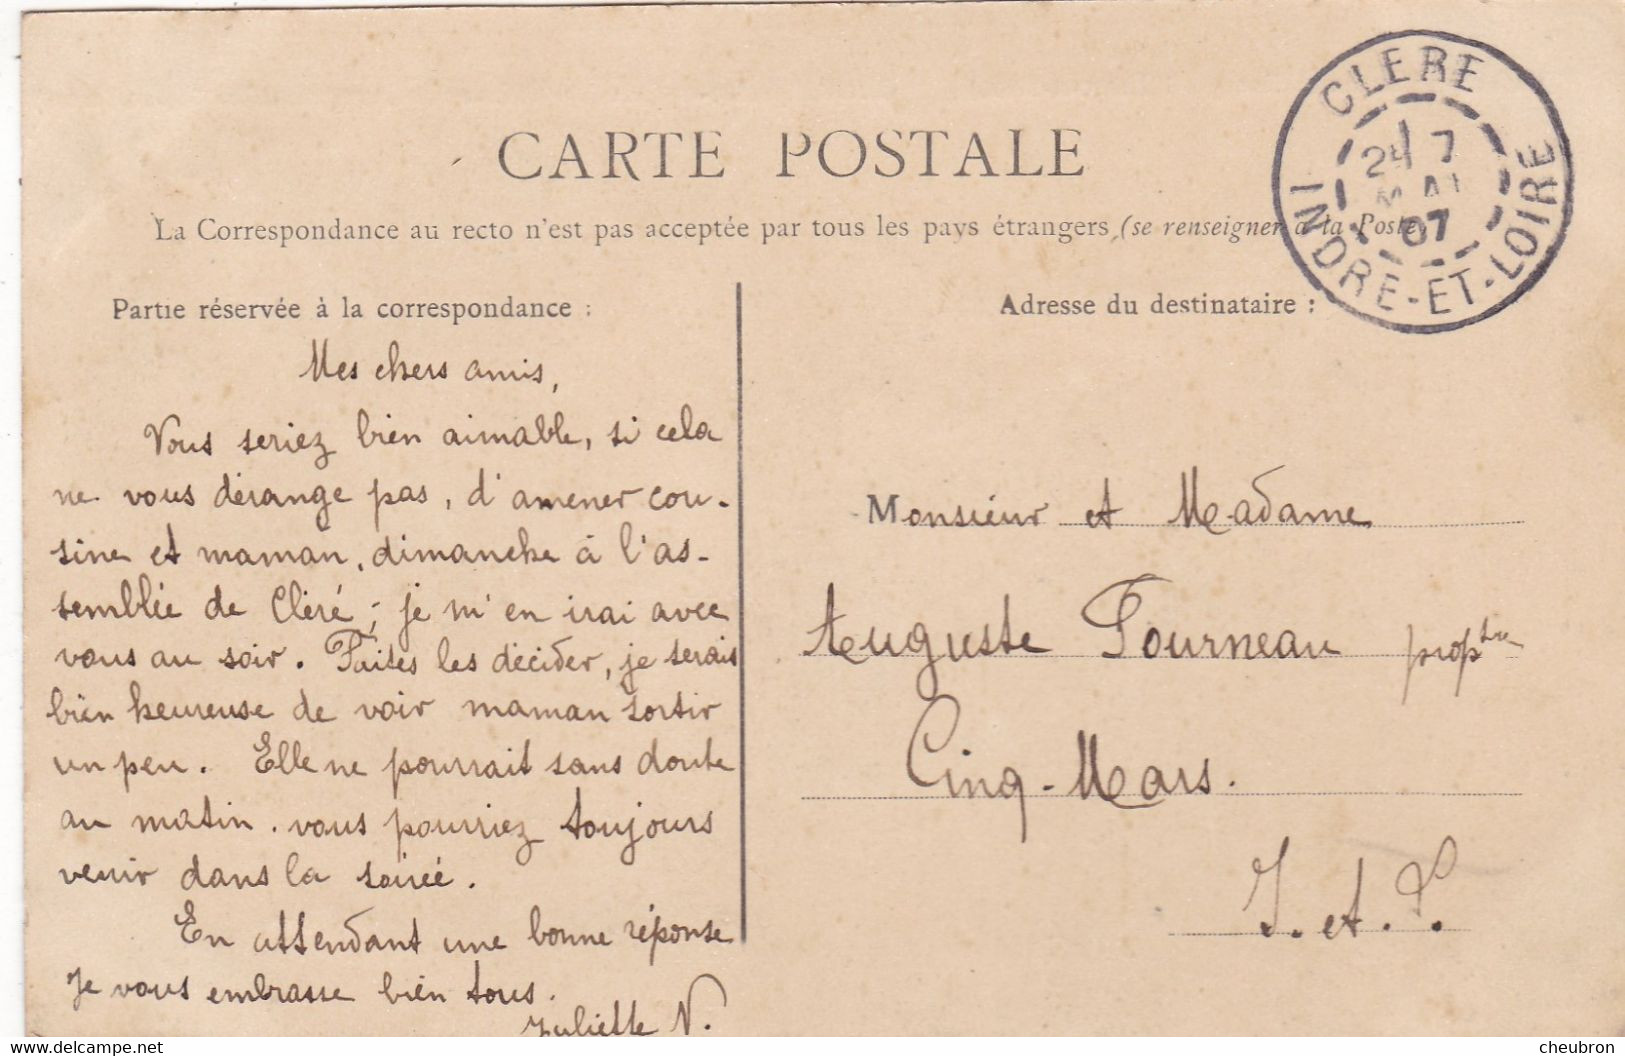 CARTE POSTALE
La Correspondance au recto n'est pas acceptée par tous les pays étrangers (se renseigner à la Poste)
CLERE
24 7
MAI
07
INDRE-ET-LOIRE
Partie réservée à la correspondance :
Mes chers amis,
Vous seriez bien aimable, si cela
ne vous dérange pas, d'amener cou-
sine et maman, dimanche à l'as-
semblée de Cléré; je m'en irai avec
vous au soir. Faites les décider, je serais
bien heureuse de voir maman sortir
un peu. Elle ne pourrait sans doute
au matin. vous pourriez toujours
venir dans la soirée.
En attendant une bonne réponse
Je vous embrasse bien tous.
Juliette N.
Adresse du destinataire :
Monsieur et Madame
Auguste Tourneau prop
Cinq-Mars.
I. et. L.
delcampe.net
cheubron